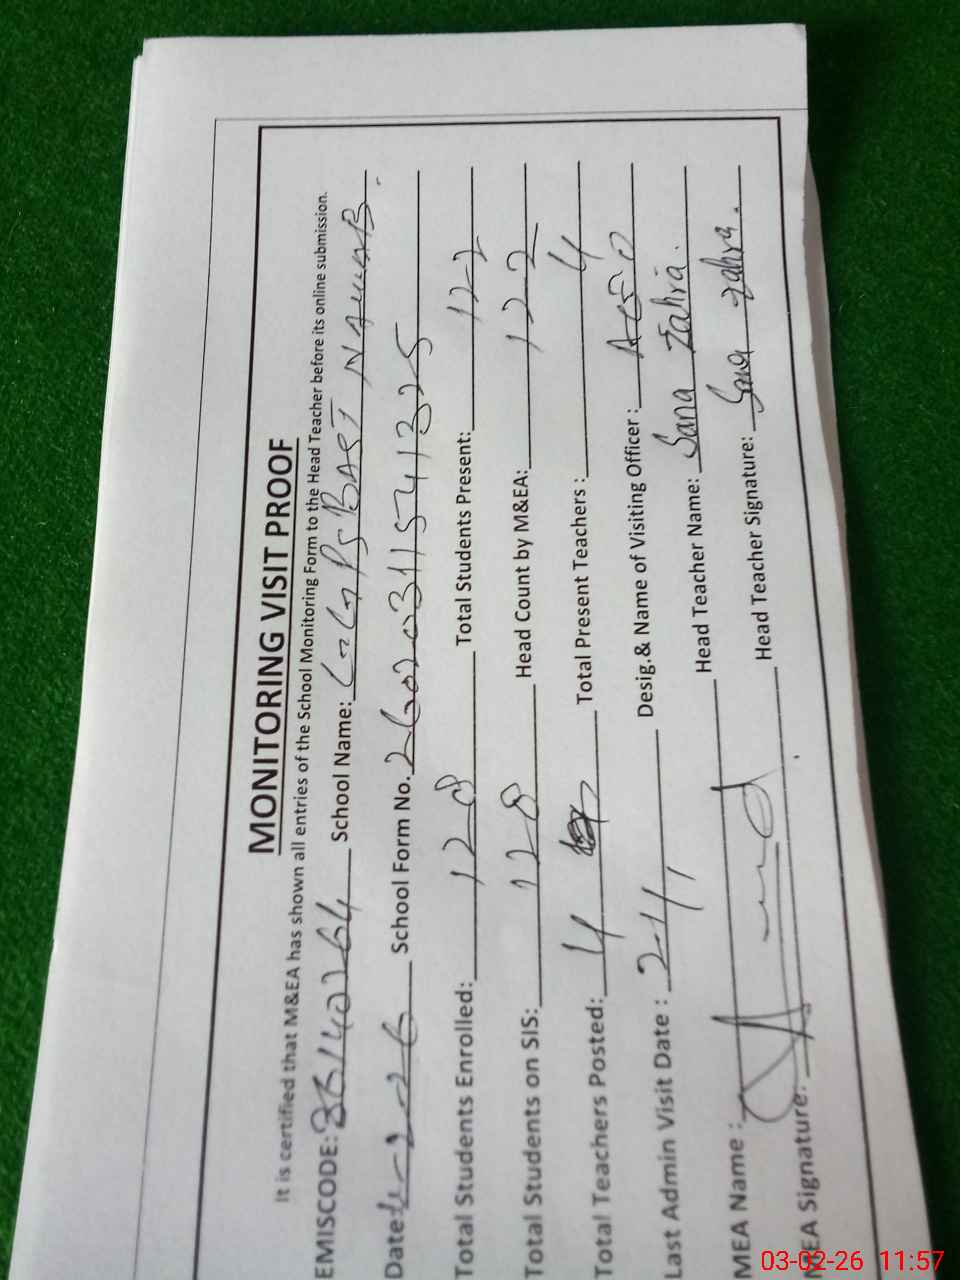 MONITORING VISIT PROOF
It is certified that M&EA has shown all entries of the School Monitoring Form to the Head Teacher before its online submission.
EMISCODE: 36140264 School Name: GGPS BAST
Date: School Form No. 26020311541325
Total Students Enrolled: 128 Total Students Present: 122
Total Students on SIS: 128 Head Count by M&EA: 122
Total Teachers Posted: 4 Total Present Teachers : 4
Last Admin Visit Date : Desig.& Name of Visiting Officer :
MEA Name : Head Teacher Name: Sana Zahra.
MEA Signature: Head Teacher Signature: Sana Zahra.
03-02-26 11:57